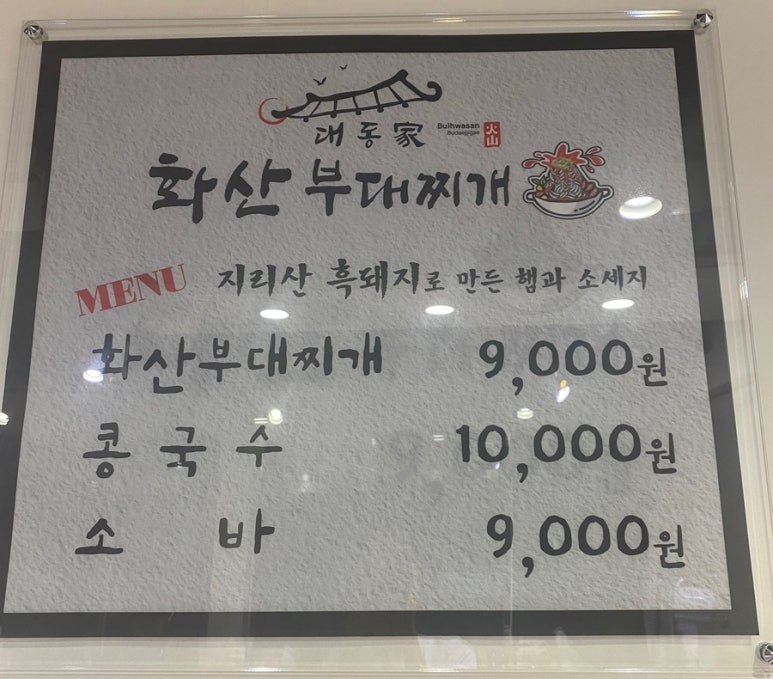 대동家 Bulhwasan
Budaejjigae 火山
화산 부대찌개
MENU 지리산 흑돼지로 만든 햄과 소세지
화산부대찌개 9,000원
콩국수 10,000원
소바 9,000원